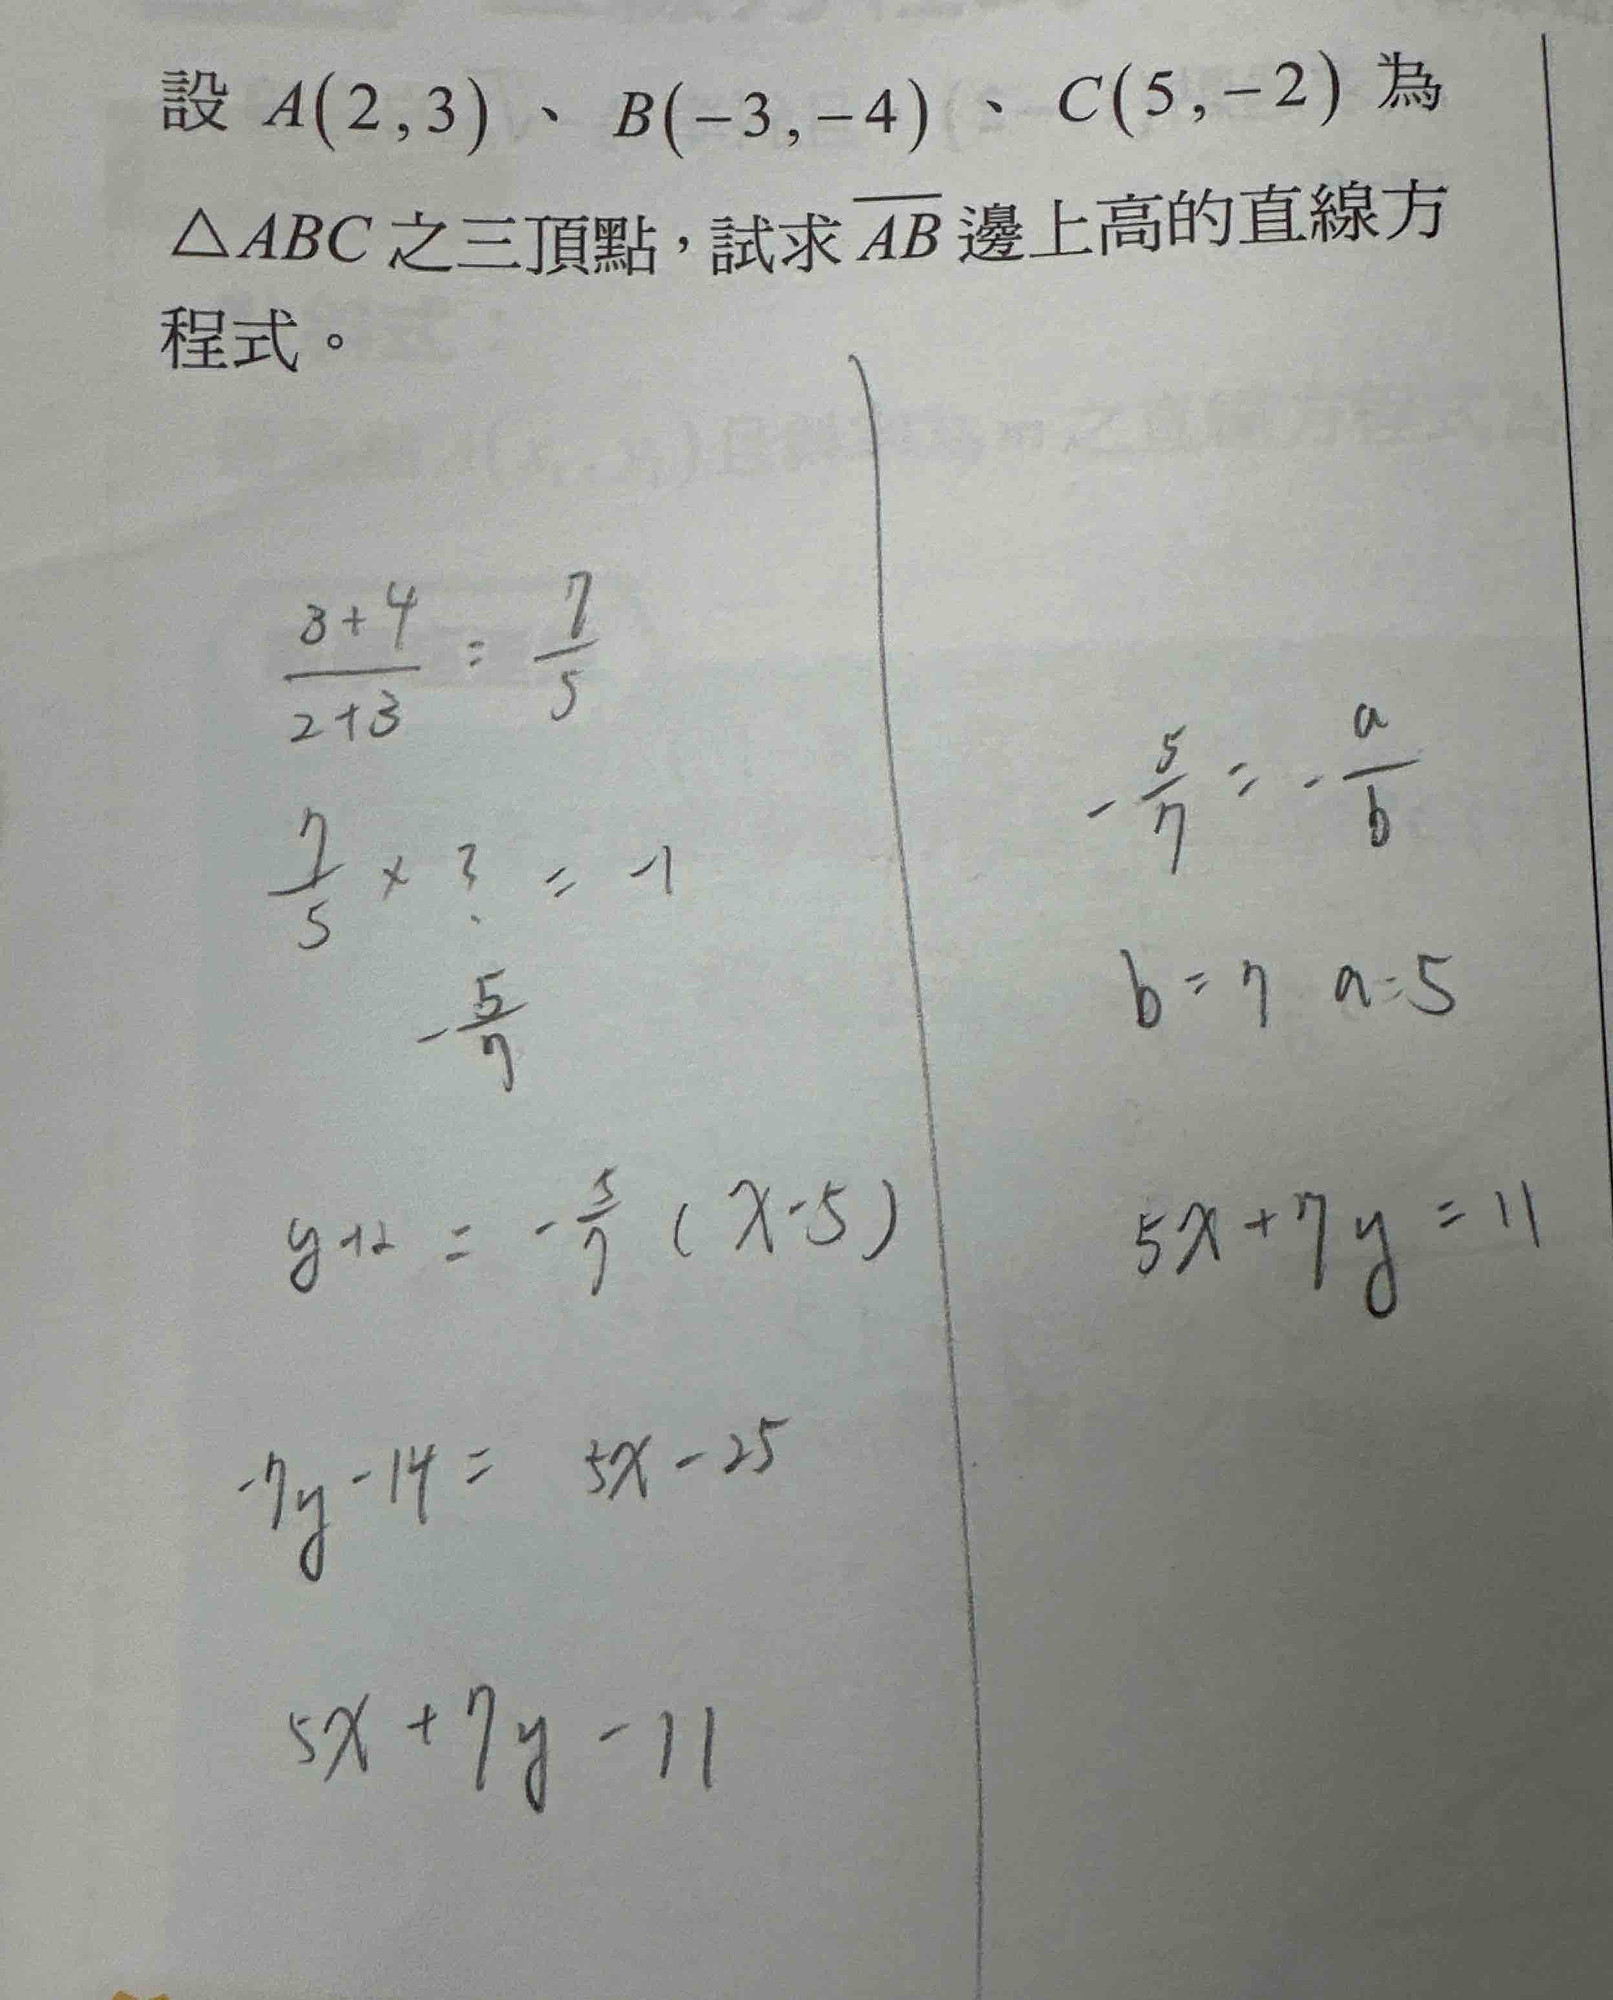 設 A(2,3)、B(-3,-4)、C(5,-2) 為
△ABC 之三頂點，試求 \overline{AB} 邊上高的直線方
程式。
\frac{3+4}{2+3} = \frac{7}{5}
\frac{7}{5} × ? = -1
-\frac{5}{7}
y+2 = -\frac{5}{7} (x-5)
-7y-14 = 5x-25
5x+7y-11
-\frac{5}{7} = -\frac{a}{b}
b=7 a=5
5x+7y=11